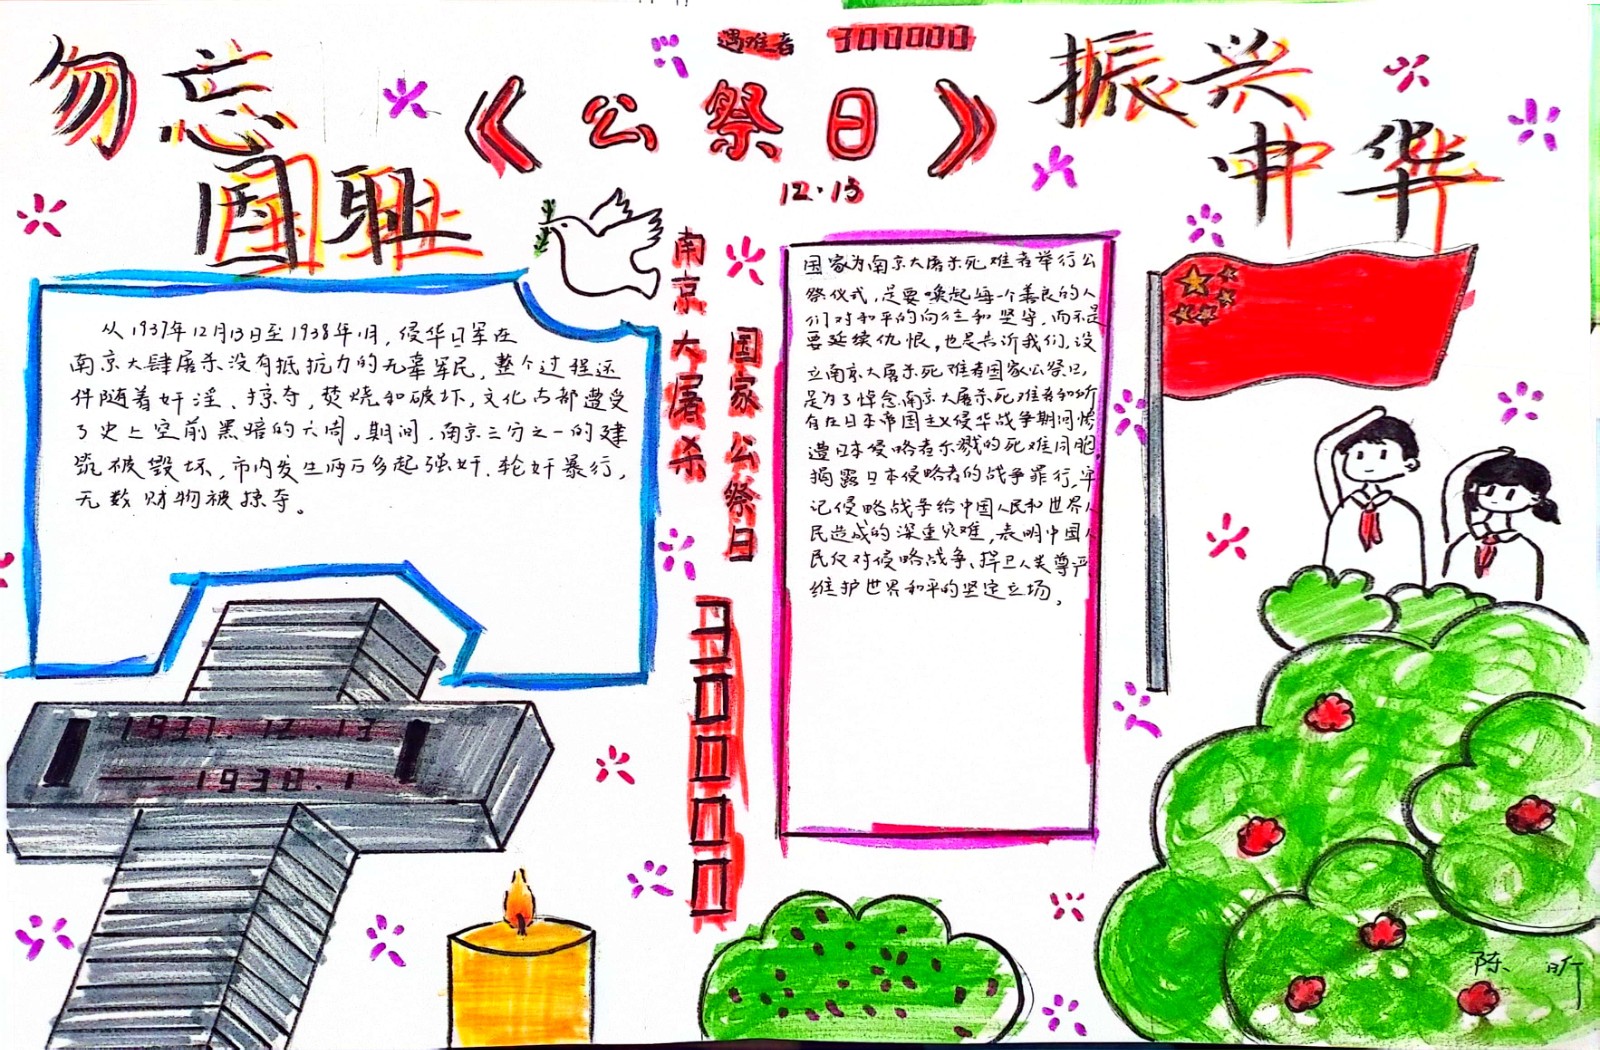 遇难者 300000
勿忘
国耻
《公祭日》
12.13
振兴
中华
从1937年12月13日至1938年1月,侵华日军在
南京大肆屠杀没有抵抗力的无辜军民,整个过程还
伴随着奸淫、掠夺,焚烧和破坏,文化古都遭受
了史上空前黑暗的六周,期间,南京三分之一的建
筑被毁坏,市内发生两万多起强奸、轮奸暴行,
无数财物被掠夺。
南京大屠杀
国家公祭日
300000
国家为南京大屠杀死难者举行公
祭仪式,是要唤起每一个善良的人
们对和平的向往和坚守,而不是
要延续仇恨,也是告诉我们,设
立南京大屠杀死难者国家公祭日,
是为了悼念南京大屠杀死难者和所
有在日本帝国主义侵华战争期间惨
遭日本侵略者杀戮的死难同胞,
揭露日本侵略者的战争罪行,牢
记侵略战争给中国人民和世界人
民造成的深重灾难,表明中国人
民反对侵略战争、捍卫人类尊严
维护世界和平的坚定立场。
1937.12.13
——1938.1
陈昕